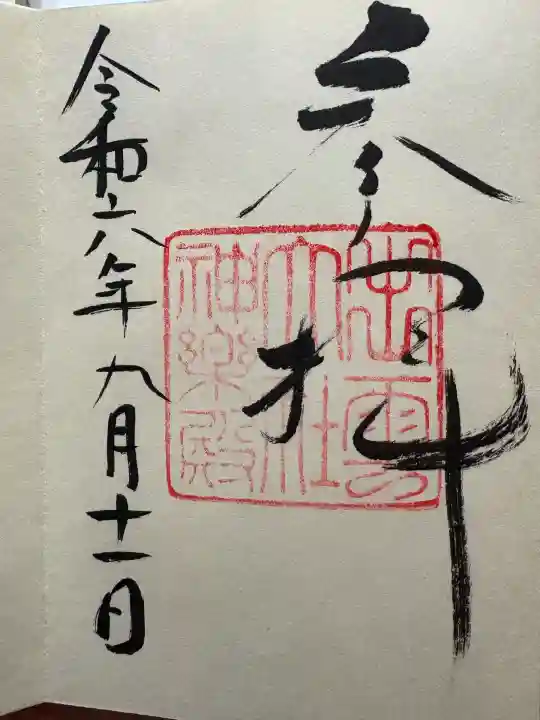 参拝
出雲
大社
神楽殿
令和六年九月十一日